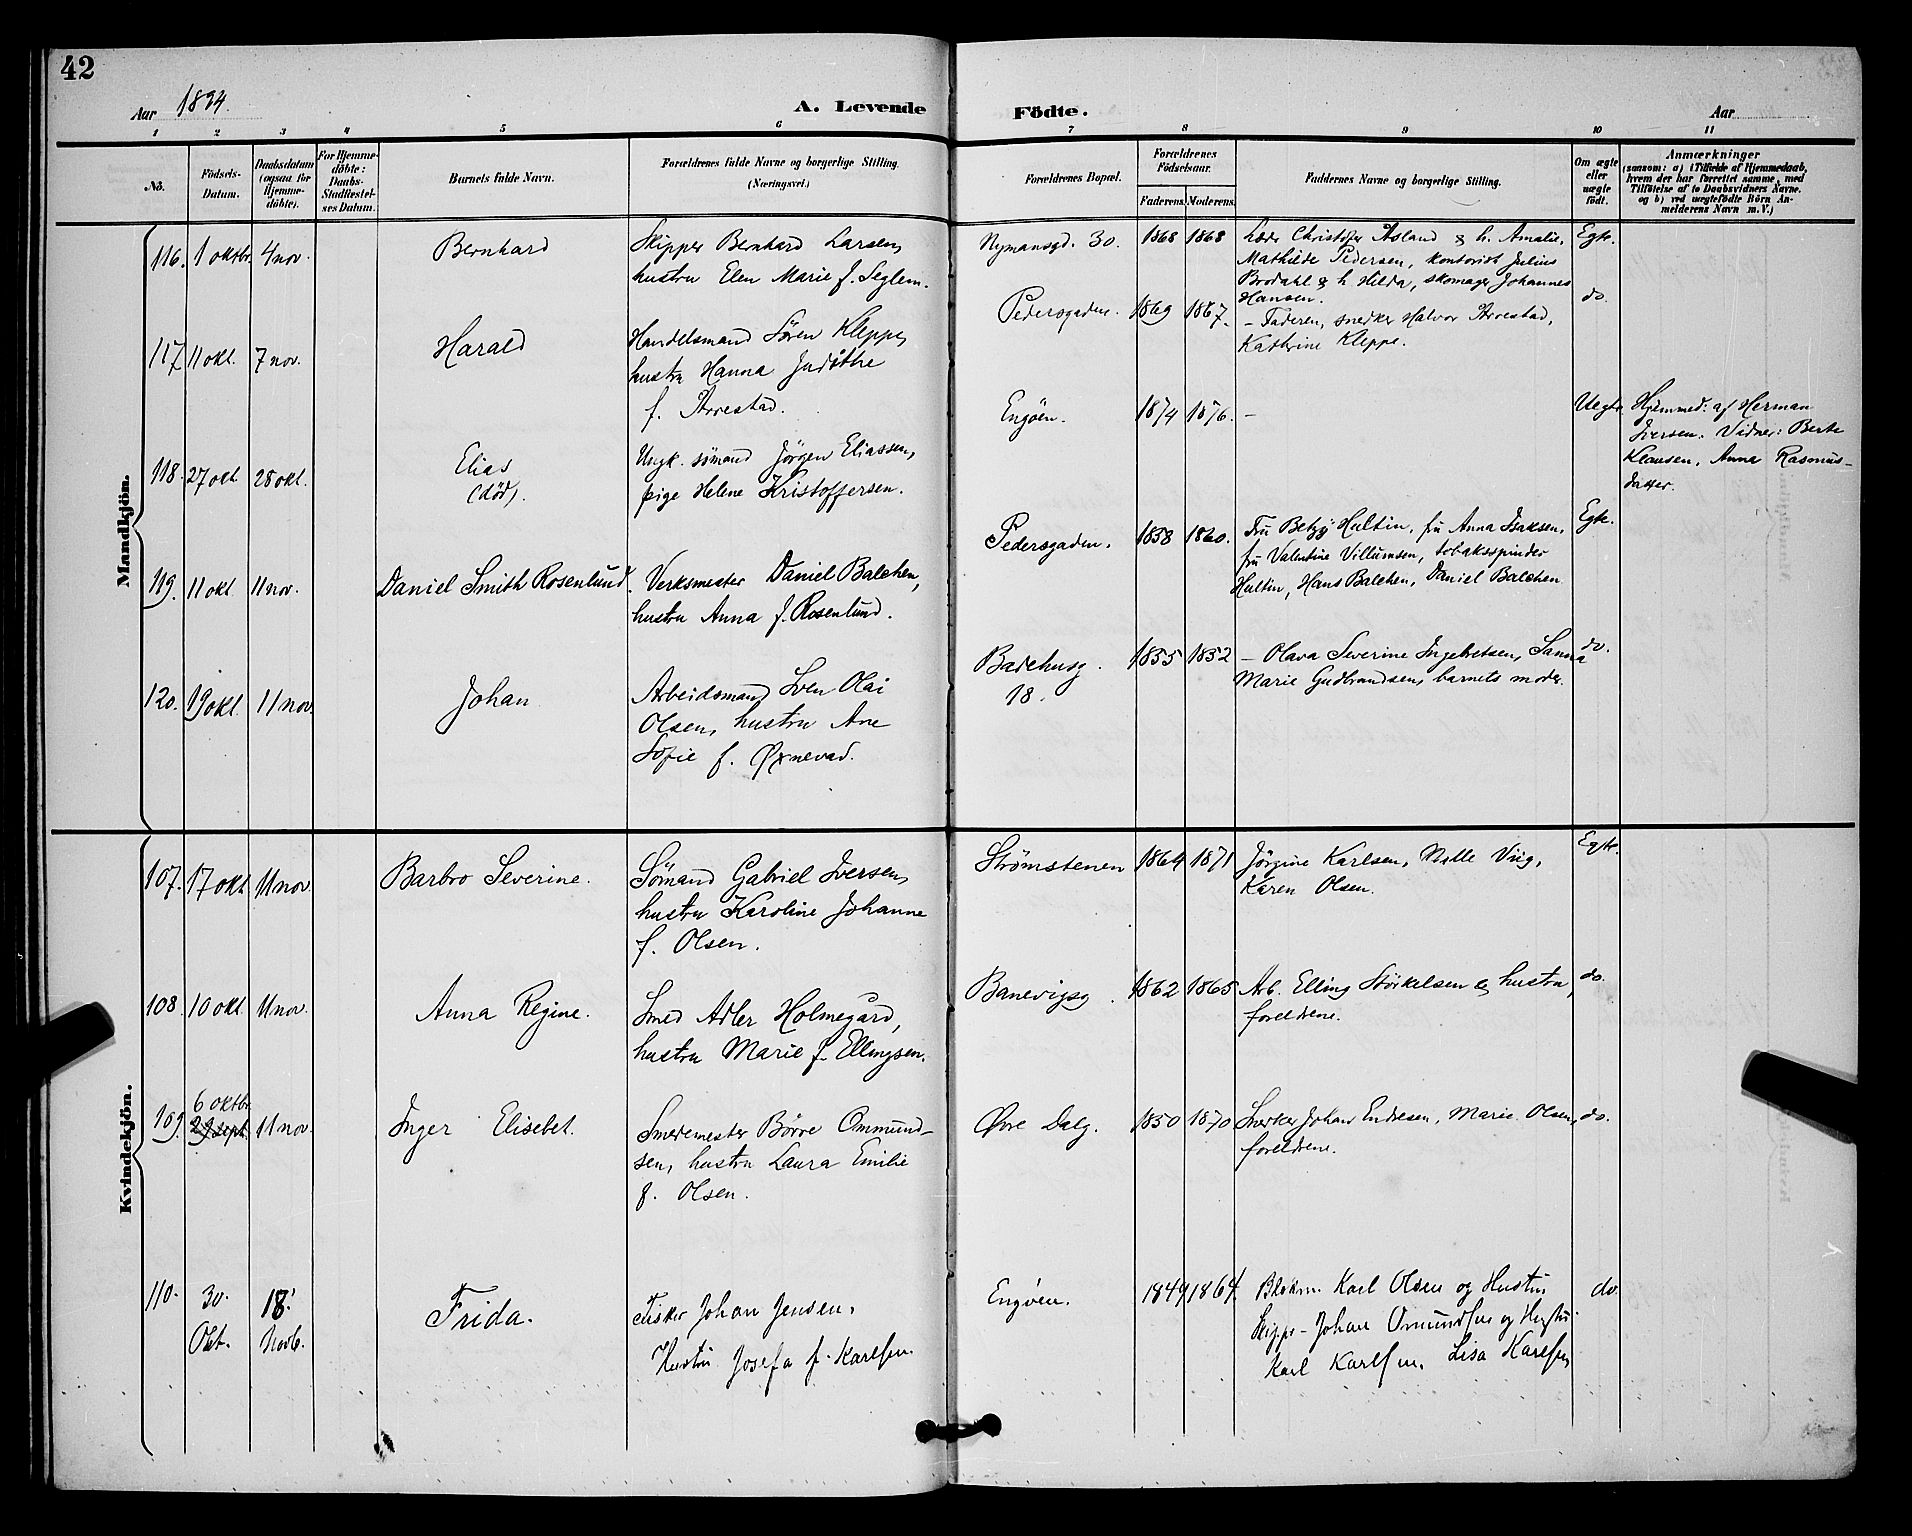 42
Aar 1894.
A. Levende Födte.
Aar
1 2 3 4 5 6 7 8 9 10 11
Nô.
Födsels-
Datum.
Daabsdatum
(ogsaa for
Hjemme-
döbte).
For Hjemme-
döbte:
Daabs-
Stadfæstel-
ses Datum.
Barnets fulde Navn.
Forældrenes fulde Navne og borgerlige Stilling.
(Næringsvei.)
Forældrenes Bopæl.
Forældrenes
Födselsaar.
Faderens. Moderens.
Faddernes Navne og borgerlige Stilling.
Om ægte
eller
uægte
födt.
Anmærkninger
(saasom: a) i Tilfælde af Hjemmedaab,
hvem der har forrettet samme, med
Tilföielse af to Daabsvidners Navne,
og b) ved uægtefödte Börn An-
melderens Navn m. V.)
Mandkjön.
116. 1 oktbr. 4 nov. Bernhard
Skipper Bernhard Larsen,
hustru Elen Marie f. Seglem.
Nymansgd. 30. 1868 1868
Christofer Åsland & h. Amalie,
Mathilde Pedersen, kontorist Julius
Brodahl & h Hilda, skomager Johannes
Hansen.
Egte.
117 11 okt. 7 nov. Harald
Handelsmand Sören Kleppe,
hustru Hanna Judithe
f. Arrestad.
Pedersgaden. 1869 1867.
– Faderen, snedker Halvor Arrestad,
Kathrine Kleppe.
do.
118. 27 okt. 28 okt. Elias
(död).
Ungk. sömand Jörgen Eliassen,
pige Helene Kristoffersen.
Engöen. 1874 1876. –
Uegte
Hjemmed: af Herman
Iversen. Vidner: Berte
Klausen, Anna Rasmus-
datter.
119. 11 okt. 11 nov. Daniel Smith Rosenlund.
Verksmester Daniel Balchen,
hustru Anna f. Rosenlund.
Pedersgaden. 1858 1860.
Fru Betzy Hultin, fru Anna Isaksen,
fru Valentine Villumsen, tobaksspinder
Hultin, Hans Balchen, Daniel Balchen
Egte.
120. 19 okt. 11 nov. Johan
Arbeidsmand Sven Olai
Olsen, hustru Ane
Sofie f. Øxnevad.
Badehusg.
18.
1855 1852
– Olava Severine Ingebretsen, Sanna
Marie Gudbrandsen, barnets moder.
do.
Kvindekjön.
107. 17 okt. 11 nov. Barbro Severine.
Sömand Gabriel Iversen,
hustru Karoline Johanne
f. Olsen.
Strømstenen 1864 1871
Jörgine Karlsen, Malle Viig,
Karen Olsen.
Egte.
108. 10 okt. 11 nov. Anna Regine.
Smed Adler Holmegård,
hustru Marie f. Ellingsen.
Banevigsg. 1862 1865
Arb. Elling Störkelsen & hustru,
foreldrene.
do.
109. 6 oktbr.
29 sept. 11 nov. Inger Elisebet.
Smedemester Börre Ommund-
sen, hustru Laura Emilie
f. Olsen.
Øvre Dalg. 1850 1870
Snerker Johan Endresen, Marie Olsen,
foreldrene.
do.
110. 30.
Okt.
18.
Novb.
Frida.
Fisker Johan Jensen,
Hustru Josefa f. Karlsen.
Engöen. 1849 1864
Karl Olsen og Hustru,
Skipper Johan Omundsen og Hustru
Karl Karlsen, Lisa Karlsen
do.